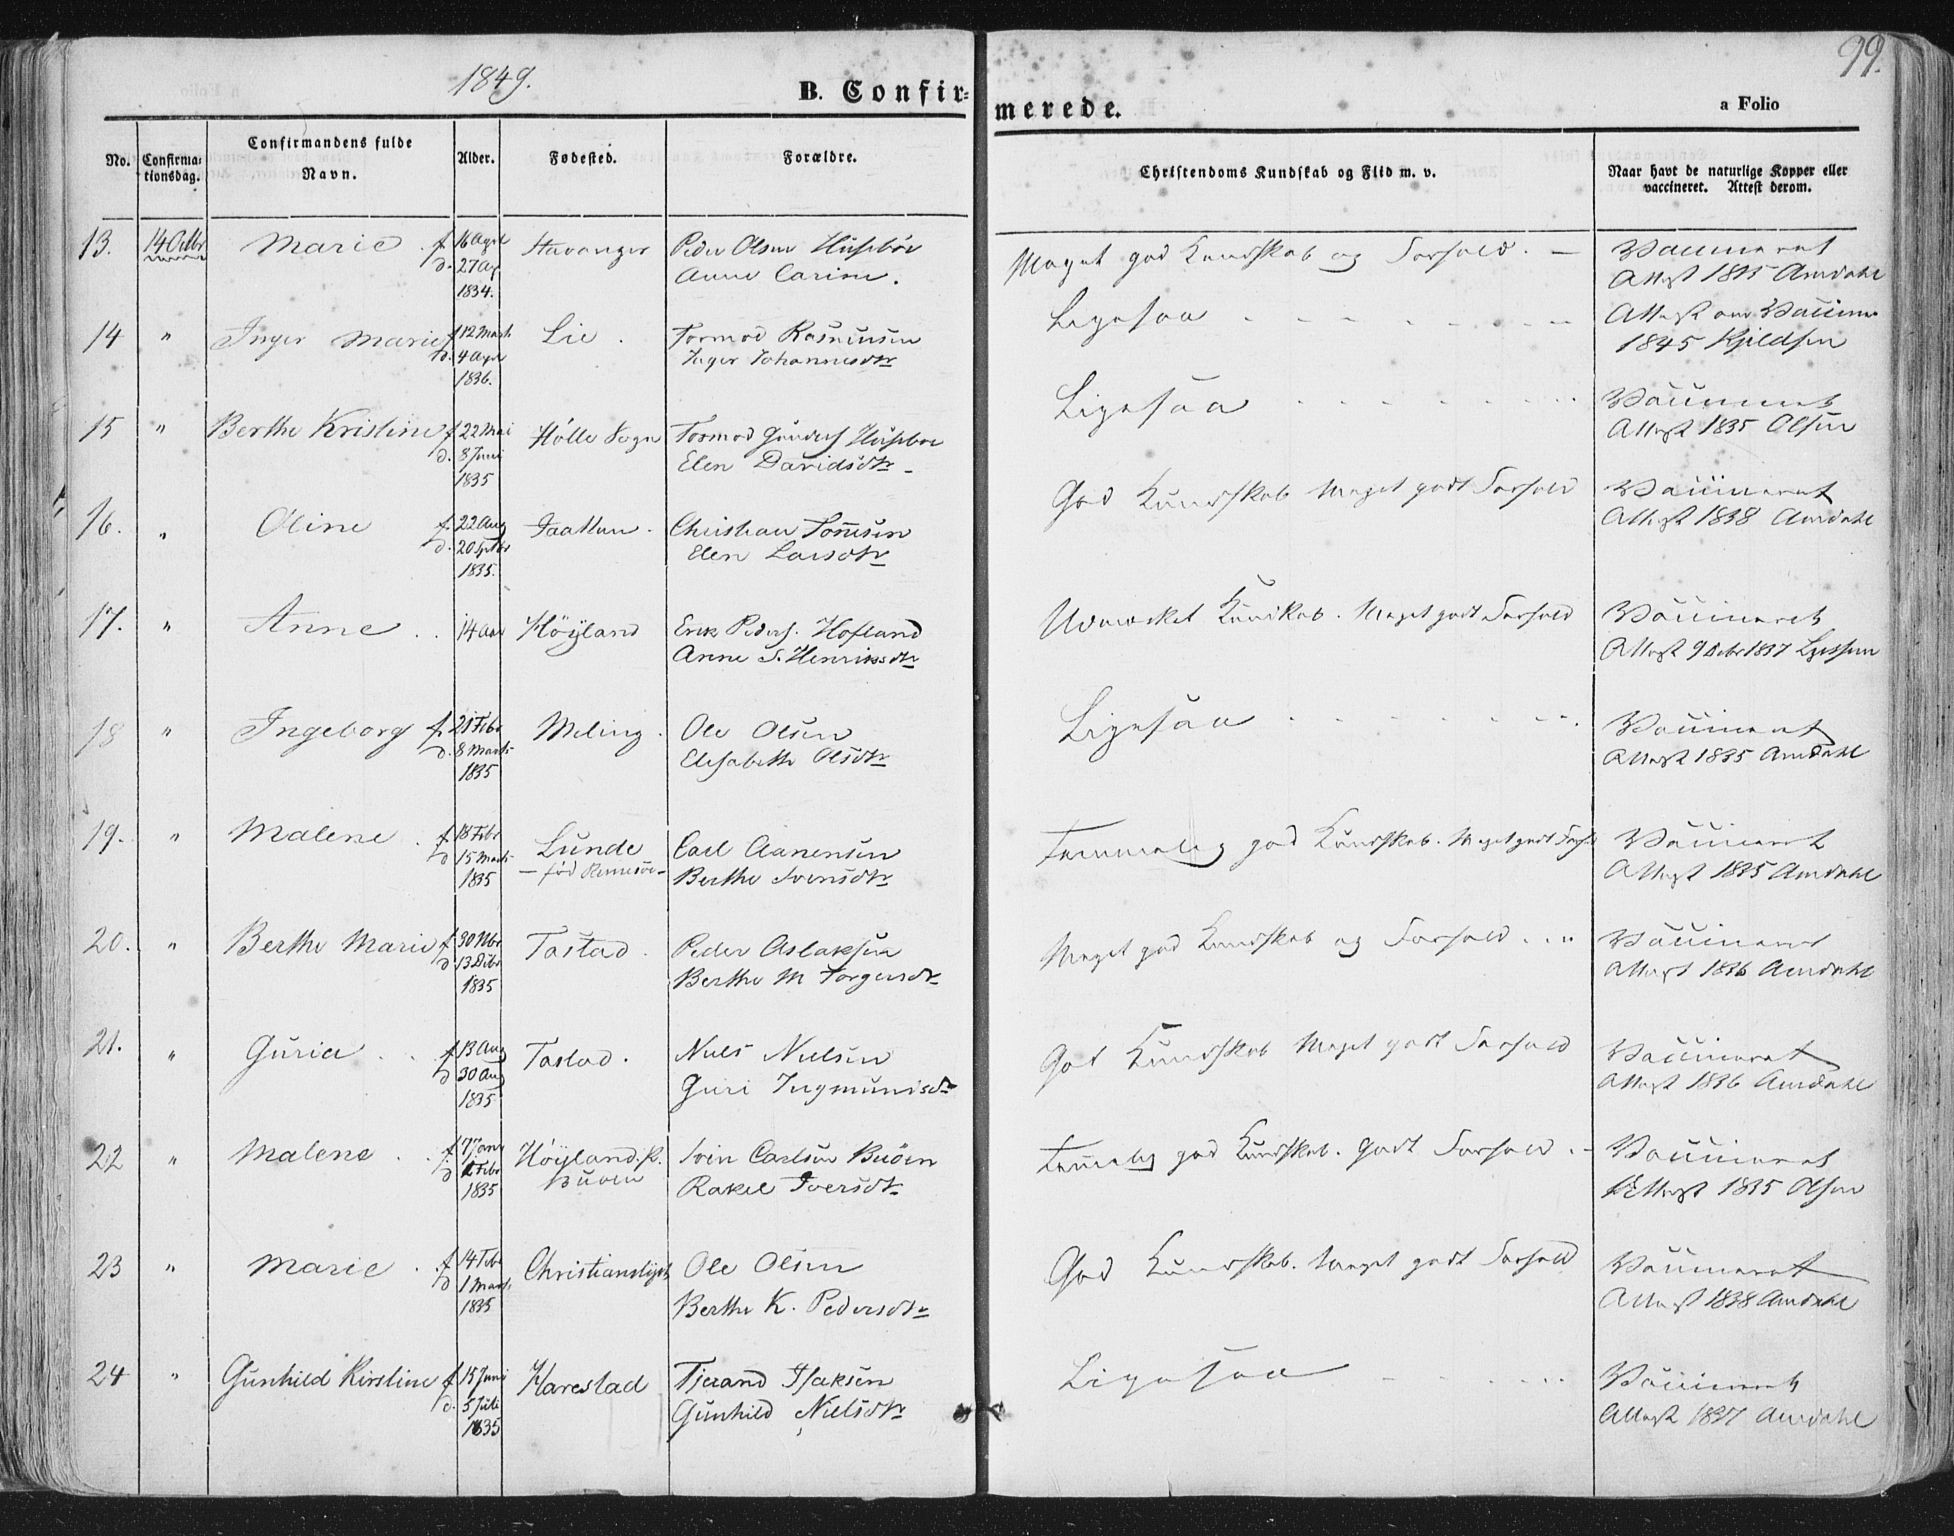 1849.
99.
B. Confir-
merede.
a Folio
No.
Confirma-
tionsdag.
Confirmandens fulde
Navn.
Alder.
Fødested.
Forældre.
Christendoms Kundskab og Flid m. v.
Naar havt de naturlige Kopper eller
vaccineret. Attest derom.
13. 14 Octbr Marie f. 16 April Stavanger Peder Olsen Husebøe Meget god Kundskab og Forhold. Vaccineret
d. 27 Ap 1834. Anne Carine. Attest 1835 Amdahl
14 " Inger Marie f. 12 Marts Lie. Tormod Rasmusen Ligesaa Attest om Vaccine
d. 4 April 1836. Inger Johannesdtr 1845 Kjeldsen
15 " Berthe Kristine f. 22 Mai Hølle Sogn Tormod Gunders Husebøe Ligesaa Vaccineret
d. 8 Juni 1835 Elen Davidsdtr Attest 1835 Olsen
16. " Oline f. 22 Aug Christian Elen Larsdtr God Kundskab Meget godt Forhold Vaccineret
d. 20 Septbr 1835. Attest 1838 Amdahl
17. " Anne 14 Aar Høyland Erik Peders. Hofland Udmærket Kundskab. Meget godt Forhold Vaccineret
Anne S. Henriksdtr Attest 1837
18 " Ingeborg f. 21 Febr Meling. Ole Olsen Ligesaa Vaccineret
d. 8 Marts 1835 Elisabeth Olsdtr Attest 1835 Amdahl
19. " Malene f. 18 Febr Lunde Carl Aanensen Temmelig god Kundskab. Meget godt Forh Vaccineret
d. 15 Marts 1835 – fød Rennesøe – Berthe Svensdtr Attest 1835 Amdahl
20. " Berthe Marie f. 30 Nbr Tastad. Peder Aslaksen Meget god Kundskab og Forhold Vaccineret
d. 13 Dcbr 1835 Berthe M Torgersdtr Attest 1836 Amdahl
21. " Guria f. 13 Aug Tastad. Niels Nielsen God Kundskab Meget godt Forhold Vaccineret
d. 30 Aug 1835 Guri Ingmundsdtr Attest 1836 Amdahl
22 " Malene f. 7 Janr Høyland. P. Sven Carlsen Buøen Temmelig god Kundskab. Godt Forhold Vaccineret
d. Febr 1835 Buøen Rakel Iversdtr Attest 1835 Olsen
23 " Marie f. 14 Febr Ole Olsen God Kundskab. Meget godt Forhold Vaccineret
d. 1 Marts 1835 Berthe K. Pedersdtr Attest 1838 Amdahl
24 " Gunhild Kirstine f. 15 Juni Harestad Tjerand Isaksen Ligesaa Vaccineret
d. 5 Juli 1835 Gunhild Nielsdtr Attest 1837 Amdahl